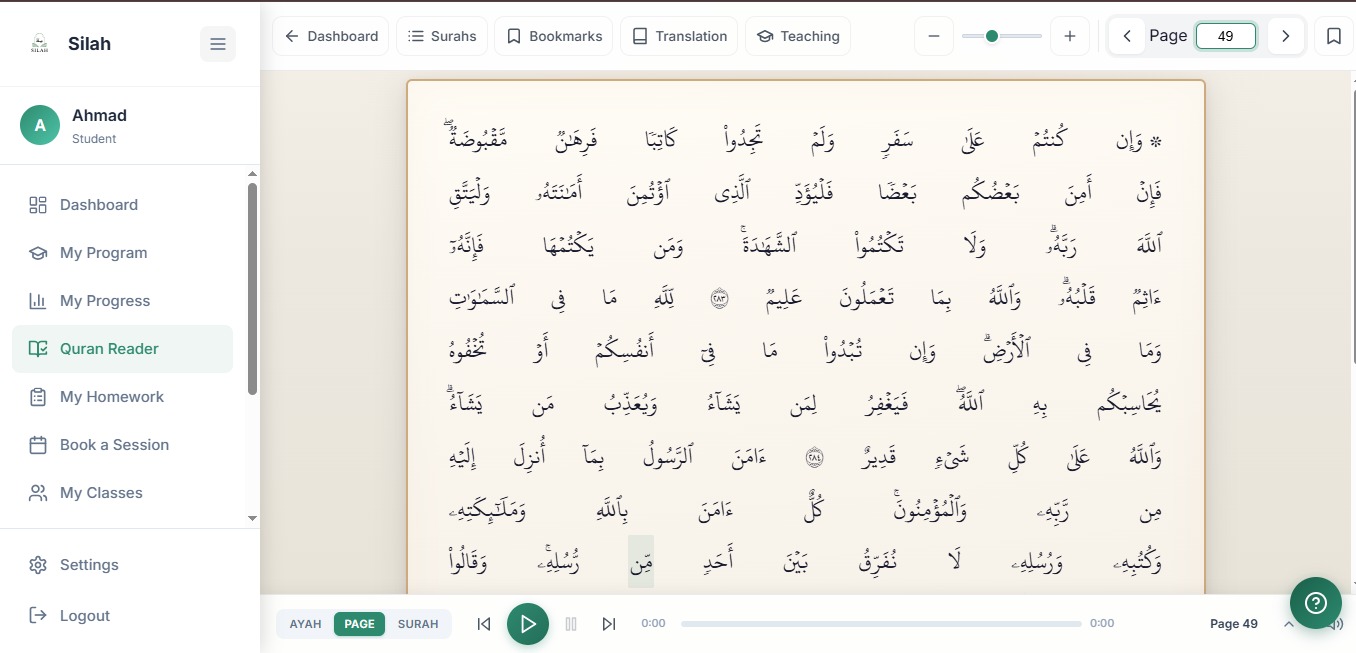 Silah
Ahmad
Student
A
Dashboard
My Program
My Progress
Quran Reader
My Homework
Book a Session
My Classes
Settings
Logout
Dashboard Surahs Bookmarks Translation Teaching Page 49
۞ وَإِن كُنتُمۡ عَلَىٰ سَفَرٖ وَلَمۡ تَجِدُواْ كَاتِبٗا فَرِهَٰنٞ مَّقۡبُوضَةٞۖ
فَإِنۡ أَمِنَ بَعۡضُكُم بَعۡضٗا فَلۡيُؤَدِّ ٱلَّذِى ٱؤۡتُمِنَ أَمَٰنَتَهُۥ وَلۡيَتَّقِ
ٱللَّهَ رَبَّهُۥۗ وَلَا تَكۡتُمُواْ ٱلشَّهَٰدَةَۚ وَمَن يَكۡتُمۡهَا فَإِنَّهُۥٓ
ءَاثِمٞ قَلۡبُهُۥۗ وَٱللَّهُ بِمَا تَعۡمَلُونَ عَلِيمٞ ٢٨٣ لِّلَّهِ مَا فِى ٱلسَّمَٰوَٰتِ
وَمَا فِى ٱلۡأَرۡضِۗ وَإِن تُبۡدُواْ مَا فِىٓ أَنفُسِكُمۡ أَوۡ تُخۡفُوهُ
يُحَاسِبۡكُم بِهِ ٱللَّهُۖ فَيَغۡفِرُ لِمَن يَشَآءُ وَيُعَذِّبُ مَن يَشَآءُۗ
وَٱللَّهُ عَلَىٰ كُلِّ شَىۡءٖ قَدِيرٌ ٢٨٤ ءَامَنَ ٱلرَّسُولُ بِمَآ أُنزِلَ إِلَيۡهِ
مِن رَّبِّهِۦ وَٱلۡمُؤۡمِنُونَۚ كُلٌّ ءَامَنَ بِٱللَّهِ وَمَلَٰٓئِكَتِهِۦ
وَكُتُبِهِۦ وَرُسُلِهِۦ لَا نُفَرِّقُ بَيۡنَ أَحَدٖ مِّن رُّسُلِهِۦۚ وَقَالُواْ
AYAH PAGE SURAH 0:00 0:00 Page 49